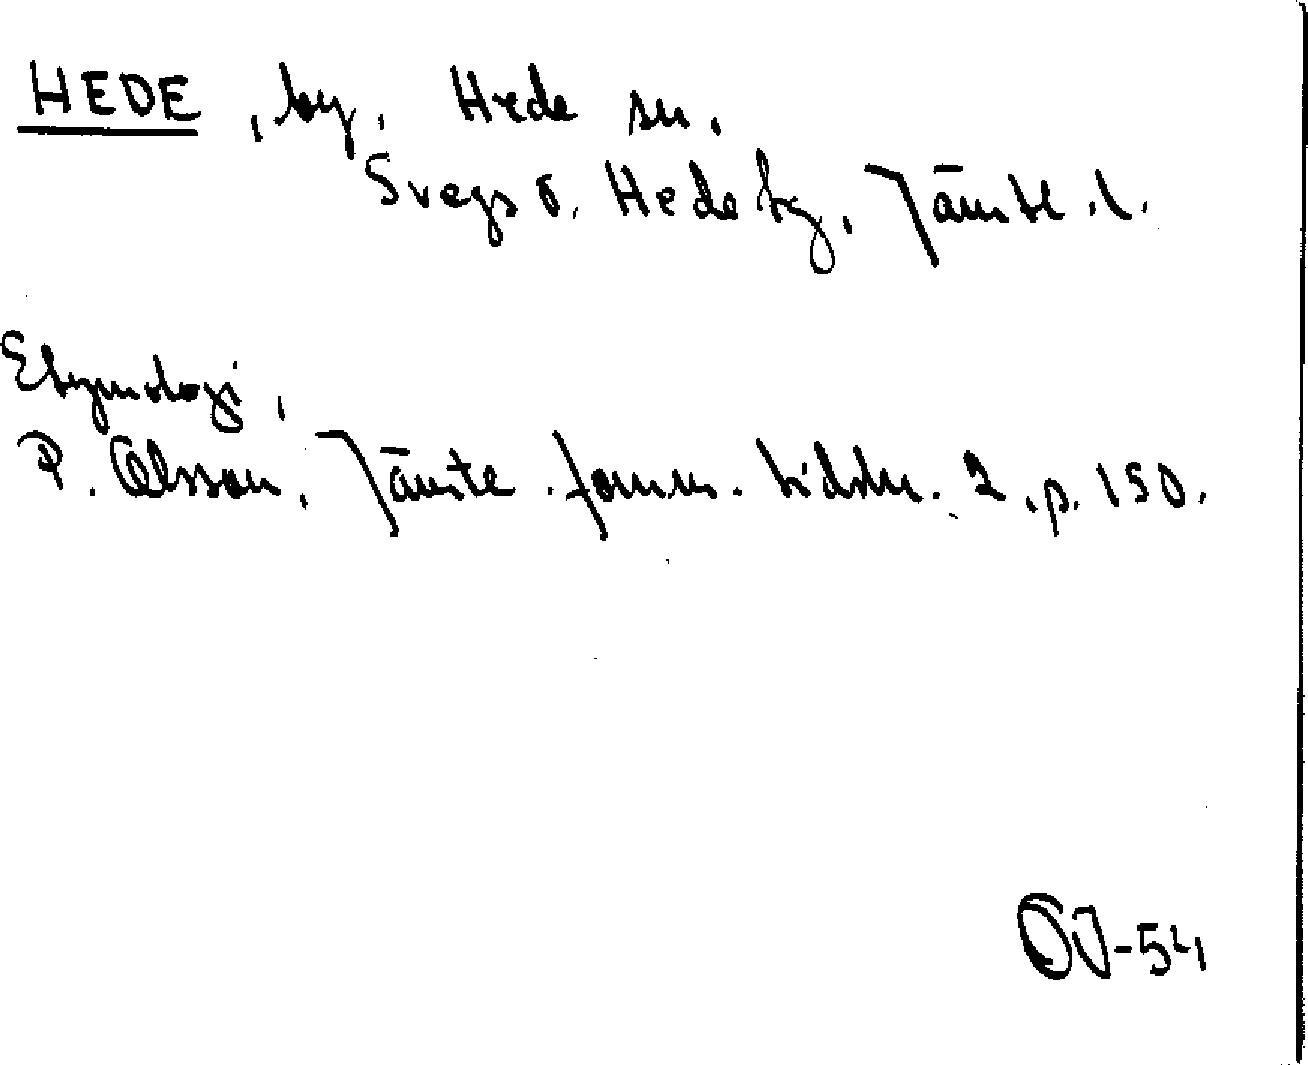 HEDE, by, Hede sn.
Svegs o. Hede tg, Jämtl. l.
Etymologi,
P. Olsson, Jämte. fornm. tidskr. 2, p. 150.
OJ-54